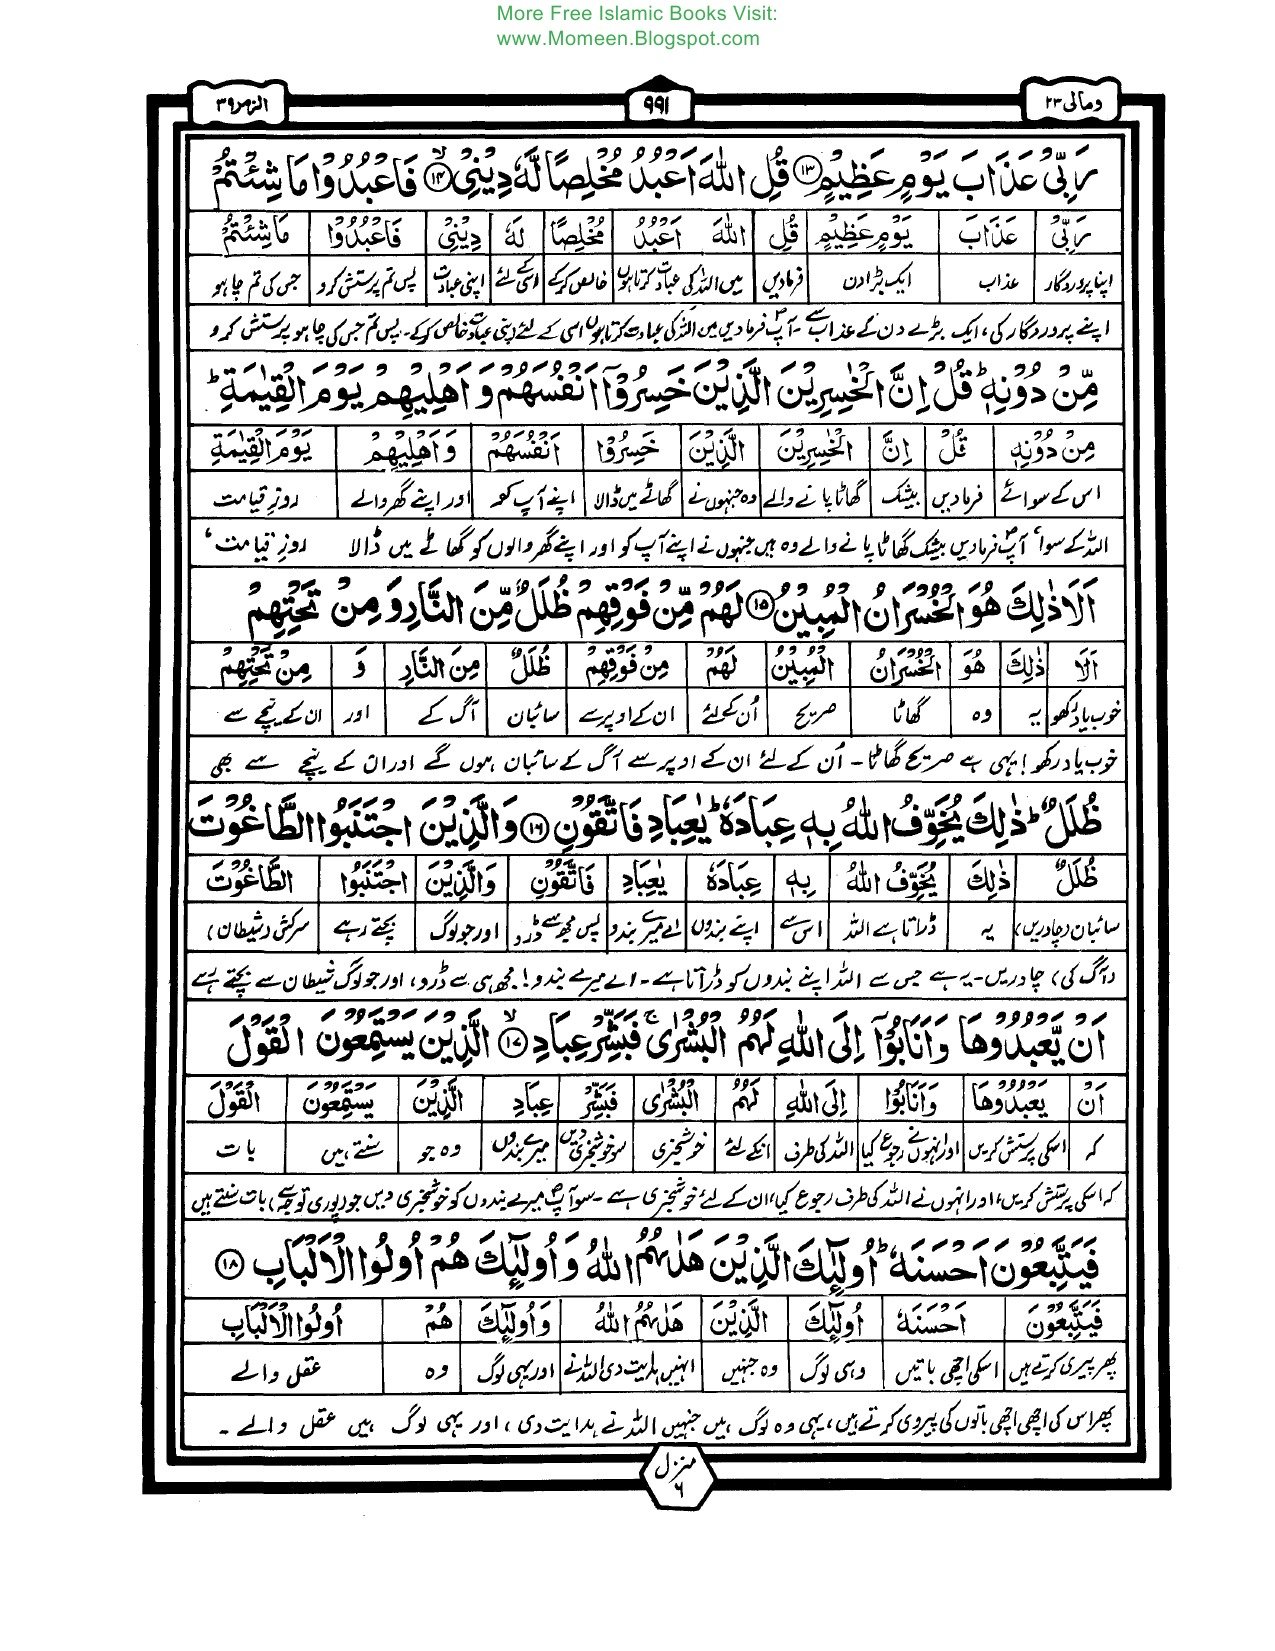 More Free Islamic Books Visit:
www.Momeen.Blogspot.com
ومالی ۲۳
۹۹۱
الزمر ۳۹
رَبِّیْ عَذَابَ یَوْمٍ عَظِیْمٍ ۝۱۳ قُلِ اللّٰهَ اَعْبُدُ مُخْلِصًا لَّهٗ دِیْنِیْ ۝۱۴ۙ فَاعْبُدُوْا مَا شِئْتُمْ
رَبِّیْ عَذَابَ یَوْمٍ عَظِیْمٍ قُلِ اللّٰهَ اَعْبُدُ مُخْلِصًا لَهٗ دِیْنِیْ فَاعْبُدُوْا مَا شِئْتُمْ
اپنا پروردگار عذاب ایک بڑا دن فرمادیں میں اللہ کی عبادت کرتا ہوں خالص کرکے اسی کے لئے اپنی عبادت پس تم پرستش کرو جس کی تم چاہو
اپنے پروردگار کی، ایک بڑے دن کے عذاب سے۔ آپؐ فرمادیں میں اللہ کی عبادت کرتا ہوں اسی کے لئے اپنی عبادت خالص کرکے۔ پس تم جس کی چاہو پرستش کرو
مِّنْ دُوْنِهٖؕ قُلْ اِنَّ الْخٰسِرِیْنَ الَّذِیْنَ خَسِرُوْۤا اَنْفُسَهُمْ وَ اَهْلِیْهِمْ یَوْمَ الْقِیٰمَةِؕ
مِنْ دُوْنِهٖ قُلْ اِنَّ الْخٰسِرِیْنَ الَّذِیْنَ خَسِرُوْا اَنْفُسَهُمْ وَاَهْلِیْهِمْ یَوْمَ الْقِیٰمَةِ
اس کے سوائے فرمادیں بیشک گھاٹا پانے والے وہ جنہوں نے گھاٹے میں ڈالا اپنے آپ کو اور اپنے گھر والے روزِ قیامت
اللہ کے سوا، آپؐ فرمادیں بیشک گھاٹا پانے والے وہ ہیں جنہوں نے اپنے آپ کو اور اپنے گھر والوں کو گھاٹے میں ڈالا روزِ قیامت،
اَلَا ذٰلِكَ هُوَ الْخُسْرَانُ الْمُبِیْنُ ۝۱۵ لَهُمْ مِّنْ فَوْقِهِمْ ظُلَلٌ مِّنَ النَّارِ وَ مِنْ تَحْتِهِمْ
اَلَا ذٰلِكَ هُوَ الْخُسْرَانُ الْمُبِیْنُ لَهُمْ مِنْ فَوْقِهِمْ ظُلَلٌ مِنَ النَّارِ وَ مِنْ تَحْتِهِمْ
خوب یاد رکھو یہ وہ گھاٹا صریح اُن کے لئے ان کے اوپر سے سائبان آگ کے اور ان کے نیچے سے
خوب یاد رکھو! یہی ہے صریح گھاٹا۔ اُن کے لئے ان کے اوپر سے آگ کے سائبان ہوں گے اور ان کے نیچے سے بھی
ظُلَلٌؕ ذٰلِكَ یُخَوِّفُ اللّٰهُ بِهٖ عِبَادَهٗؕ یٰعِبَادِ فَاتَّقُوْنِ ۝۱۶ وَالَّذِیْنَ اجْتَنَبُوا الطَّاغُوْتَ
ظُلَلٌ ذٰلِكَ یُخَوِّفُ اللّٰهُ بِهٖ عِبَادَهٗ یٰعِبَادِ فَاتَّقُوْنِ وَالَّذِیْنَ اجْتَنَبُوا الطَّاغُوْتَ
سائبان (چادریں) یہ ڈراتا ہے اللہ اس سے اپنے بندوں اے میرے بندو پس مجھ سے ڈرو اور جو لوگ بچتے رہے سرکش (شیطان)
(آگ کی) چادریں۔ یہ ہے جس سے اللہ اپنے بندوں کو ڈراتا ہے۔ اے میرے بندو! مجھ ہی سے ڈرو، اور جو لوگ شیطان سے بچتے رہے
اَنْ یَّعْبُدُوْهَا وَاَنَابُوْۤا اِلَی اللّٰهِ لَهُمُ الْبُشْرٰیۚ فَبَشِّرْ عِبَادِ ۝۱۷ۙ الَّذِیْنَ یَسْتَمِعُوْنَ الْقَوْلَ
اَنْ یَعْبُدُوْهَا وَاَنَابُوْۤا اِلَی اللّٰهِ لَهُمُ الْبُشْرٰی فَبَشِّرْ عِبَادِ الَّذِیْنَ یَسْتَمِعُوْنَ الْقَوْلَ
کہ اسکی پرستش کریں اور انہوں نے رجوع کیا اللہ کی طرف انکے لئے خوشخبری سو خوشخبری دیں میرے بندوں وہ جو سنتے ہیں بات
کہ اسکی پرستش کریں، اور انہوں نے اللہ کی طرف رجوع کیا، ان کے لئے خوشخبری ہے۔ سو آپؐ میرے بندوں کو خوشخبری دیں جو (پوری توجہ سے) بات سنتے ہیں
فَیَتَّبِعُوْنَ اَحْسَنَهٗؕ اُولٰٓىِٕكَ الَّذِیْنَ هَدٰىهُمُ اللّٰهُ وَ اُولٰٓىِٕكَ هُمْ اُولُوا الْاَلْبَابِ ۝۱۸
فَیَتَّبِعُوْنَ اَحْسَنَهٗ اُولٰٓىِٕكَ الَّذِیْنَ هَدٰىهُمُ اللّٰهُ وَاُولٰٓىِٕكَ هُمْ اُولُوا الْاَلْبَابِ
پھر پیروی کرتے ہیں اسکی اچھی باتیں وہی لوگ وہ جنہیں انہیں ہدایت دی اللہ نے اور یہی لوگ وہ عقل والے
پھر اس کی اچھی اچھی باتوں کی پیروی کرتے ہیں، یہی وہ لوگ ہیں جنہیں اللہ نے ہدایت دی، اور یہی لوگ ہیں عقل والے۔
منزل ۶